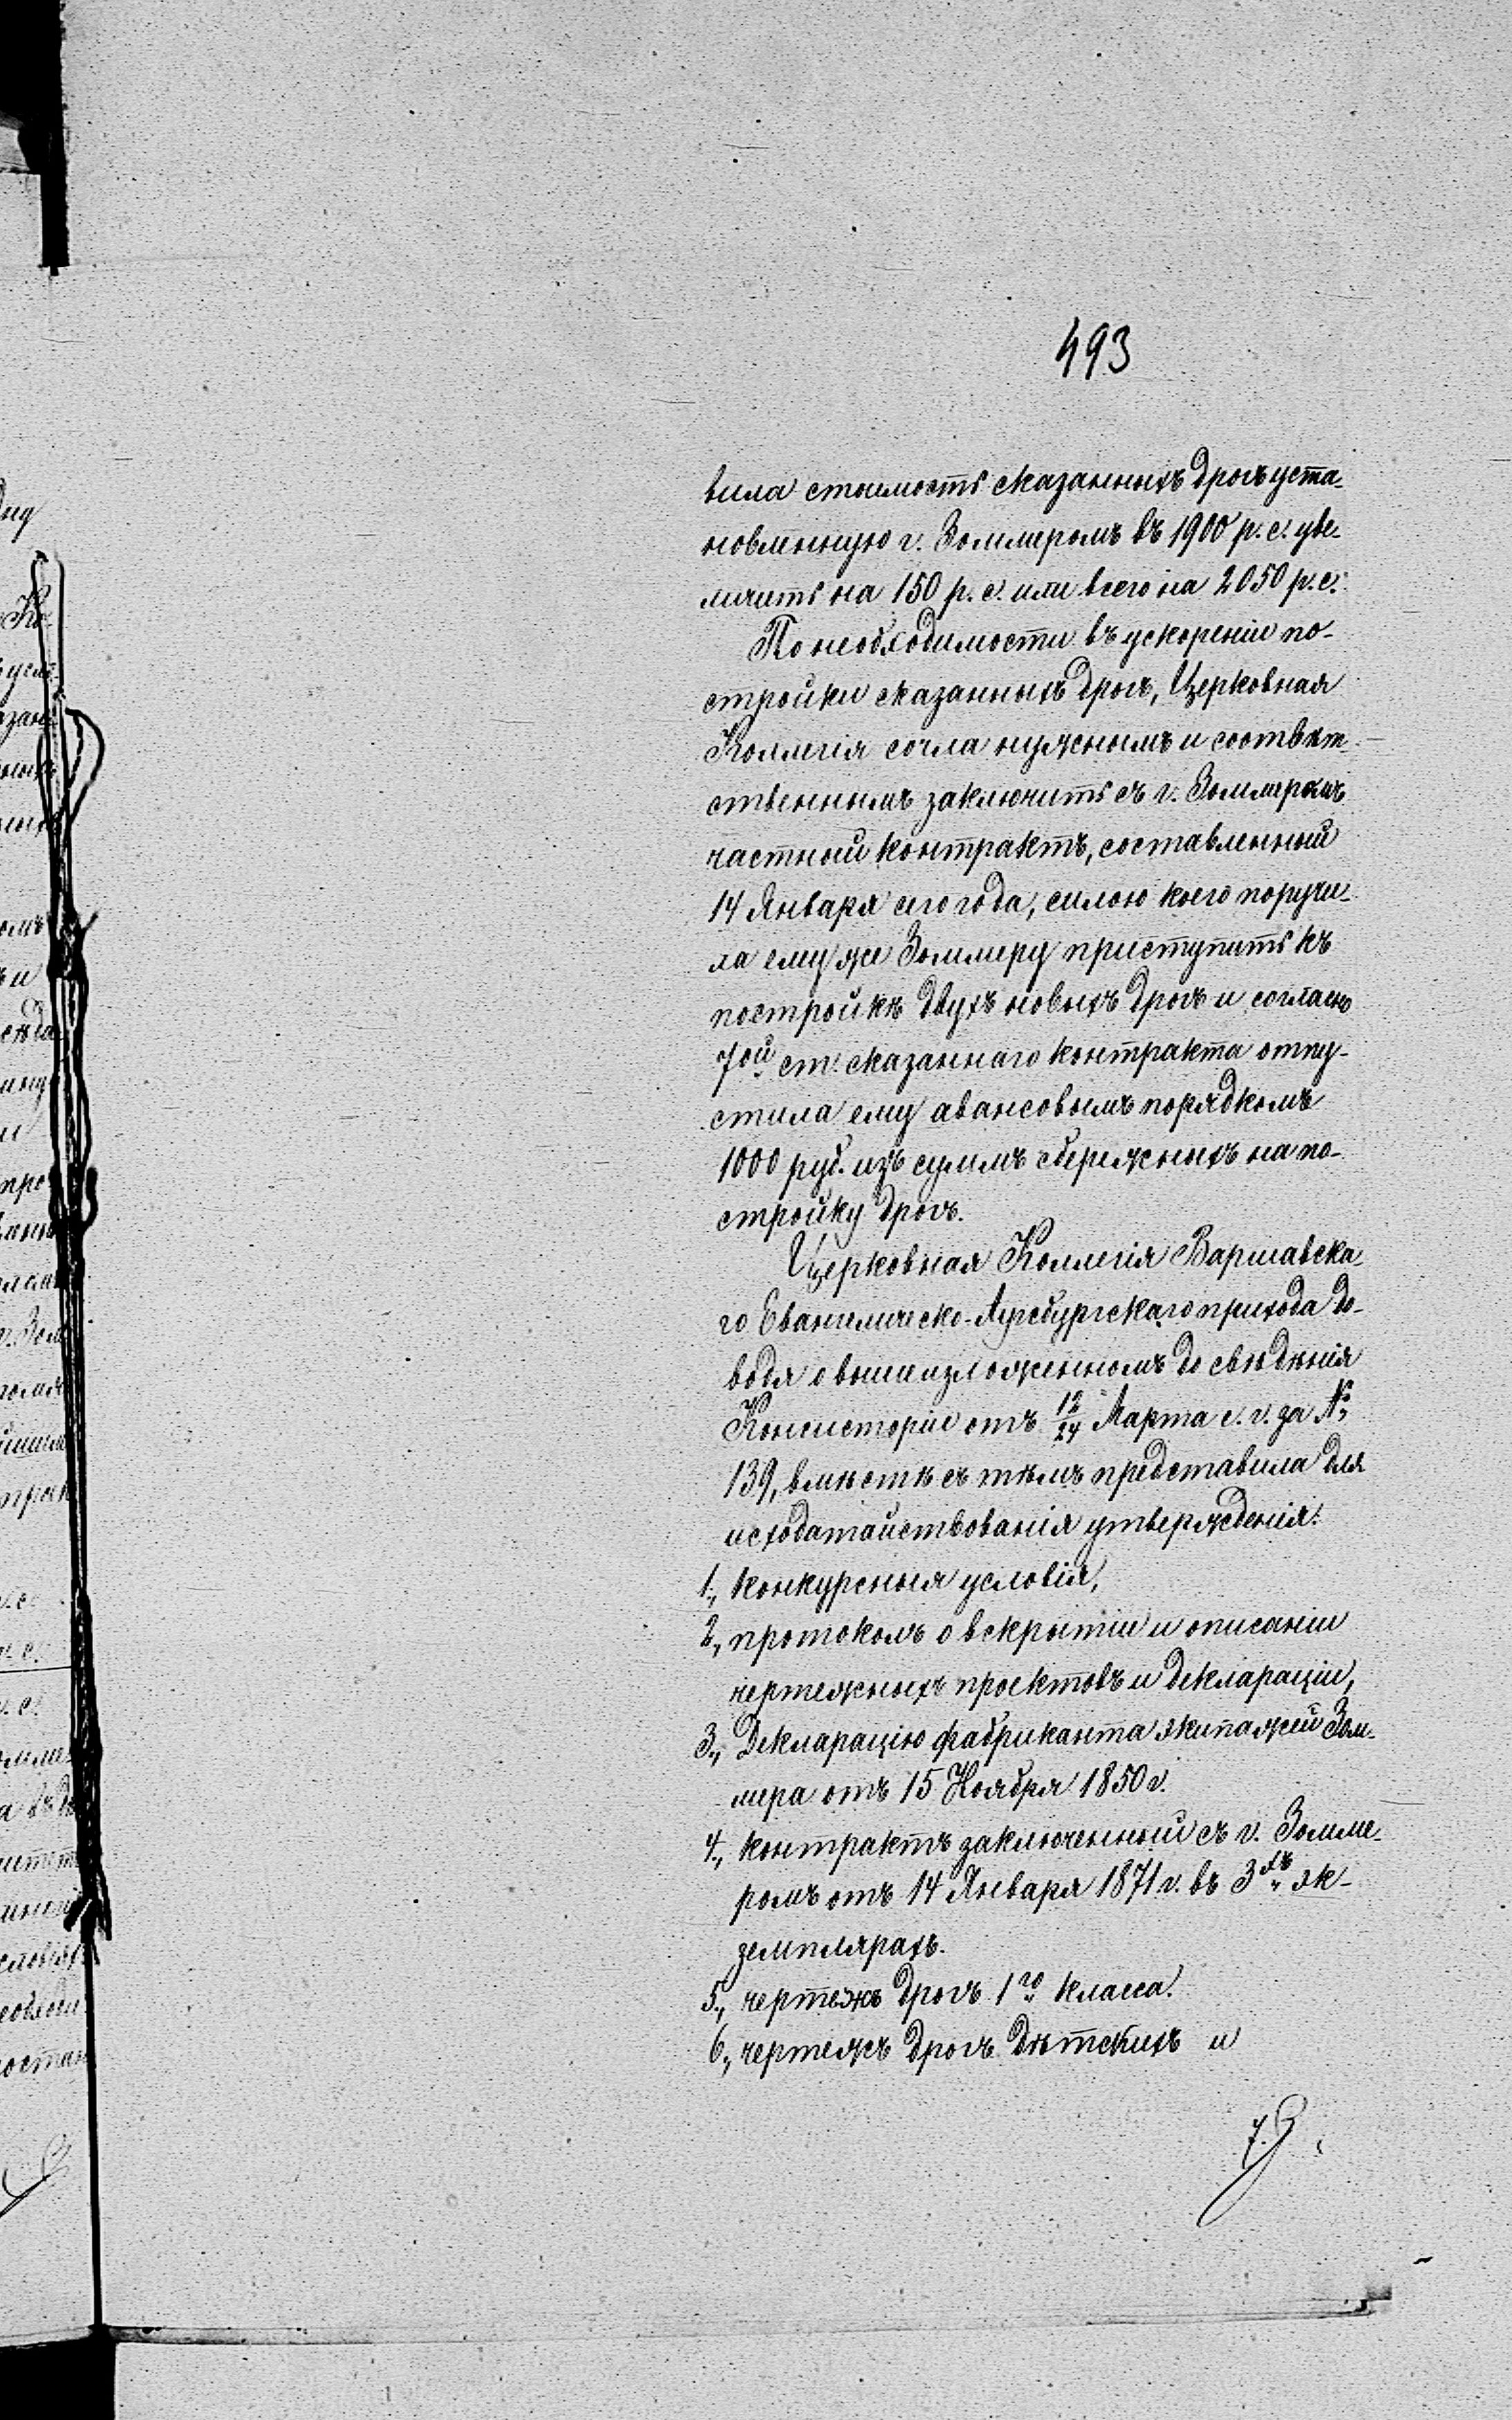 493
вила стоимость сказанныхъ дрогъ уста-
новленную г. Зоммеромъ въ 1900 р. с. уве-
личить на 150 р. с. или всего на 2050 р. с.
По необходимости въ ускореніи по-
стройки сказанныхъ дрогъ, Церковная
Коллегія сочла нужнымъ и соотвѣт-
ственнымъ заключить съ г. Зоммеромъ
частный контрактъ, составленный
14 Января сего года, силою коего поручи-
ла ему же Зоммеру приступить къ
постройкѣ двухъ новыхъ дрогъ и согласно
7ой ст. сказаннаго контракта отпу-
стила ему авансовымъ порядкомъ
1000 руб. изъ суммъ сбереженыхъ на по-
стройку дрогъ.
Церковная Коллегія Варшавска-
го Евангелическо-Аугсбургскаго прихода до-
водя о вышеизложенномъ до свѣдѣнія
Консисторіи отъ 12/24 Марта с. г. за №
139, вмѣстѣ съ тѣмъ представила для
исходатайствованія утвержденія:
1., конкурсныя условія,
2., протоколъ о вскрытіи и описаніи
чертежныхъ проектовъ и декларации,
3., Декларацію фабриканта экипажей Зом-
мера отъ 15 Ноября 1850 г.
4., контрактъ заключенный съ г. Зомме-
ромъ отъ 14 Января 1871 г. въ 3хъ эк-
земплярахъ.
5., чертежъ дрогъ 1го класса.
6., чертежъ дрогъ дѣтскихъ и